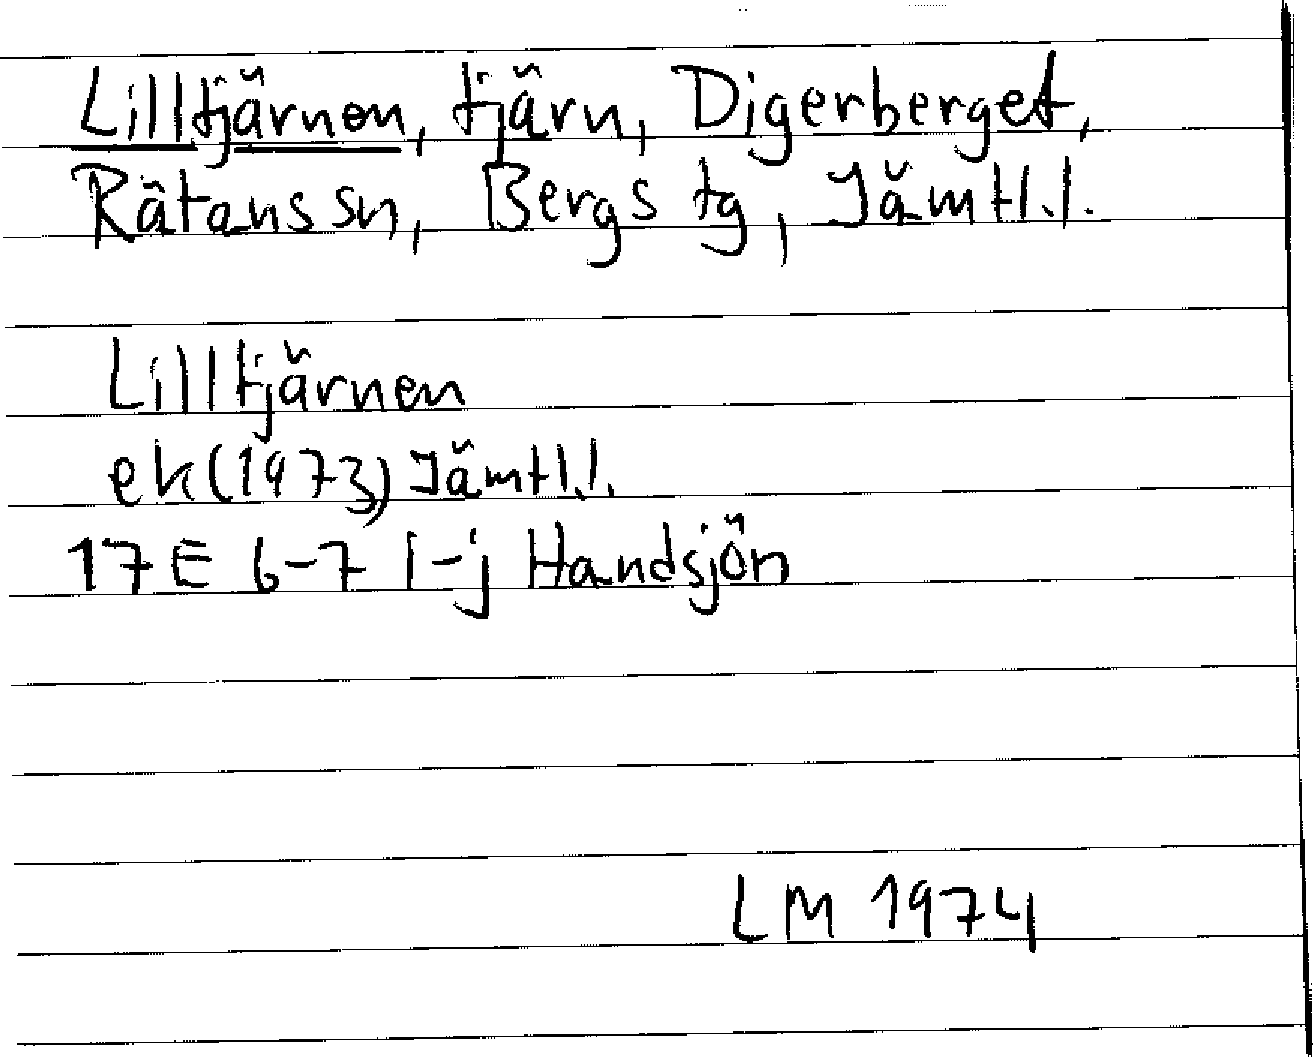 Lilltjärnen, tjärn, Digerberget,
Rätans sn, Bergs tg, Jämtl.l.
Lilltjärnen
ek(1973) Jämtl.l.
17E 6-7 i-j Handsjön
LM 1974